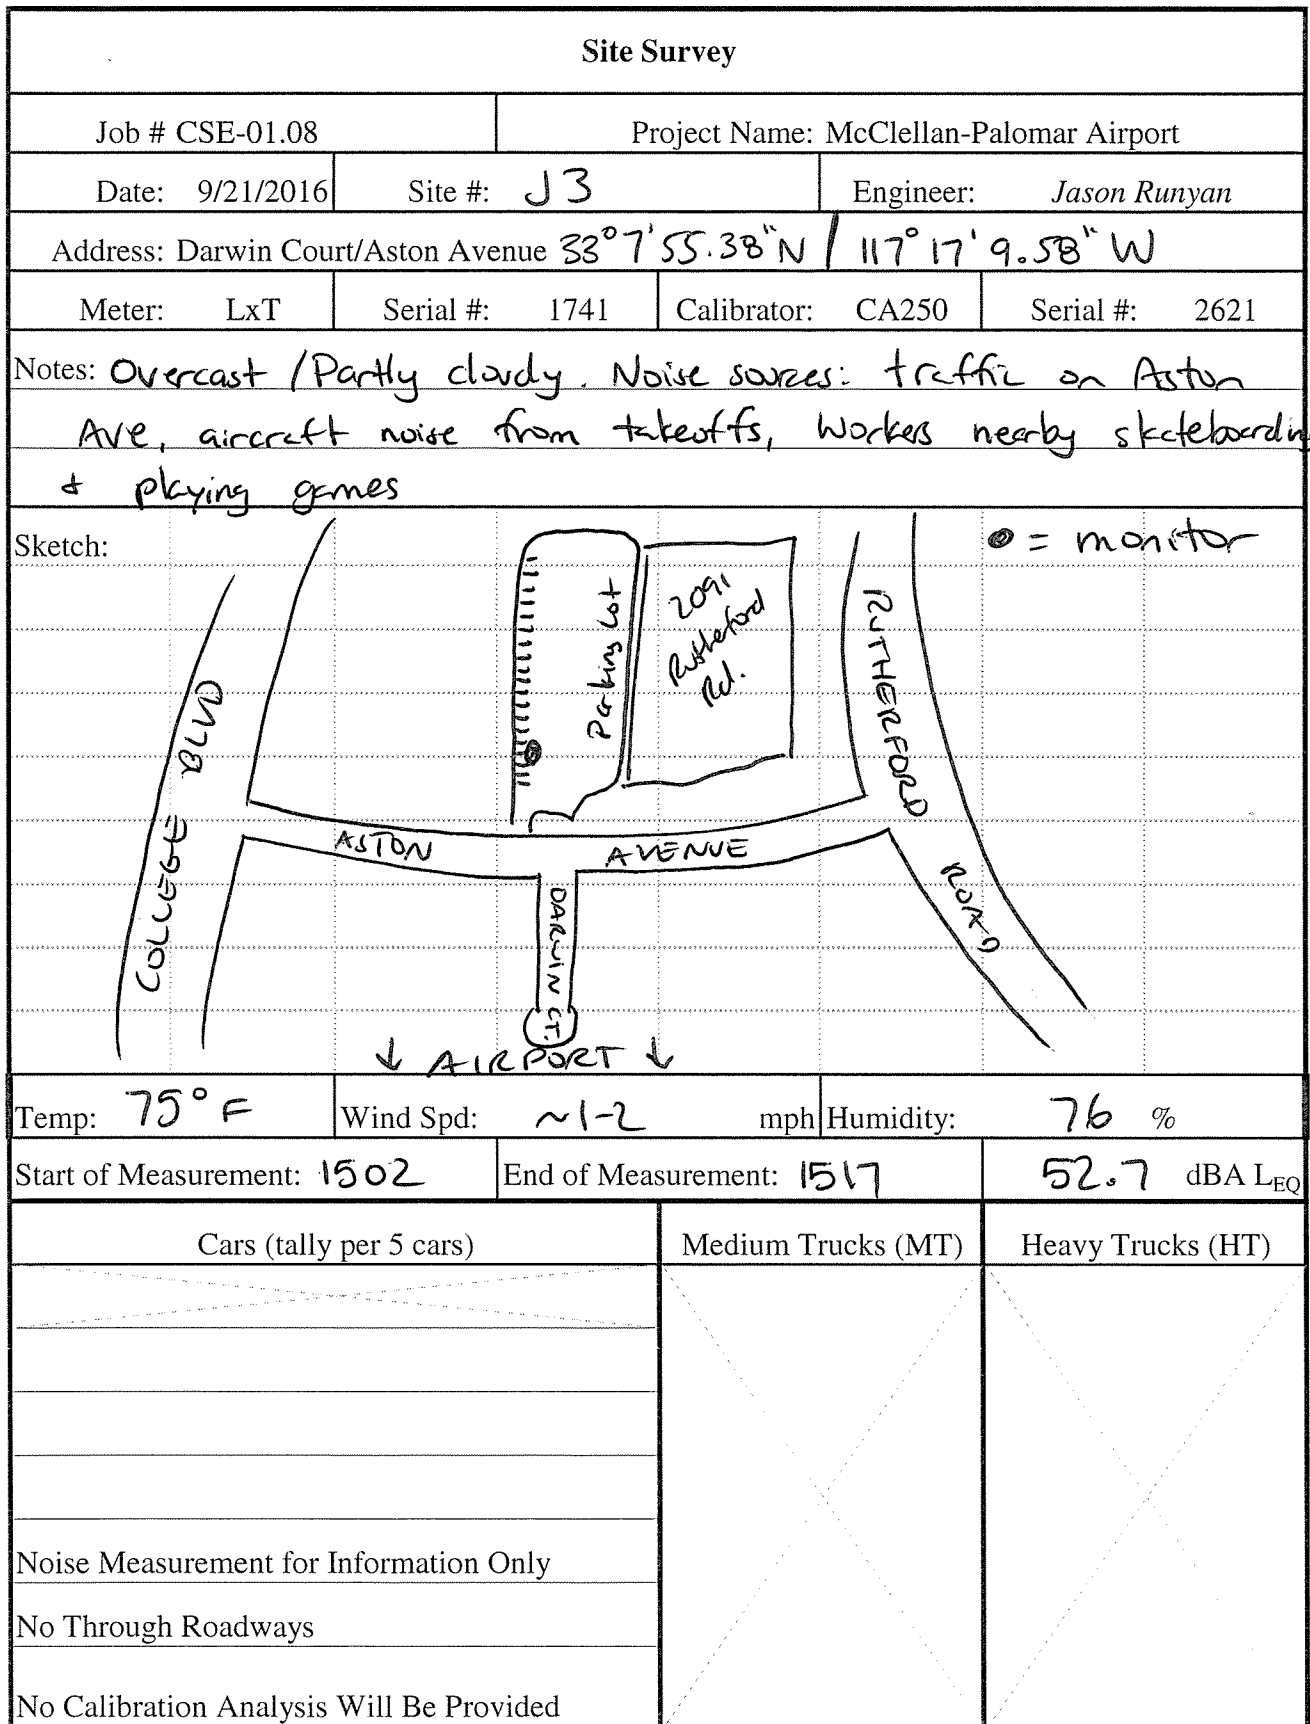 Site Survey
Job # CSE-01.08 Project Name: McClellan-Palomar Airport
Date: 9/21/2016 Site #: J3 Engineer: Jason Runyan
Address: Darwin Court/Aston Avenue 33°7'55.38"N / 117°17'9.58"W
Meter: LxT Serial #: 1741 Calibrator: CA250 Serial #: 2621
Notes: Overcast / Partly cloudy. Noise sources: traffic on Aston
Ave, aircraft noise from takeoffs, Workers nearby skateboardin
& playing games
Sketch:
= monitor
Parking Lot
2091
Rutherford
Rd.
RUTHERFORD
ROAD
COLLEGE BLVD
ASTON AVENUE
DARWIN CT.
↓ AIRPORT ↓
Temp: 75° F Wind Spd: ~1-2 mph Humidity: 76 %
Start of Measurement: 1502 End of Measurement: 1517 52.7 dBA LEQ
Cars (tally per 5 cars) Medium Trucks (MT) Heavy Trucks (HT)
Noise Measurement for Information Only
No Through Roadways
No Calibration Analysis Will Be Provided